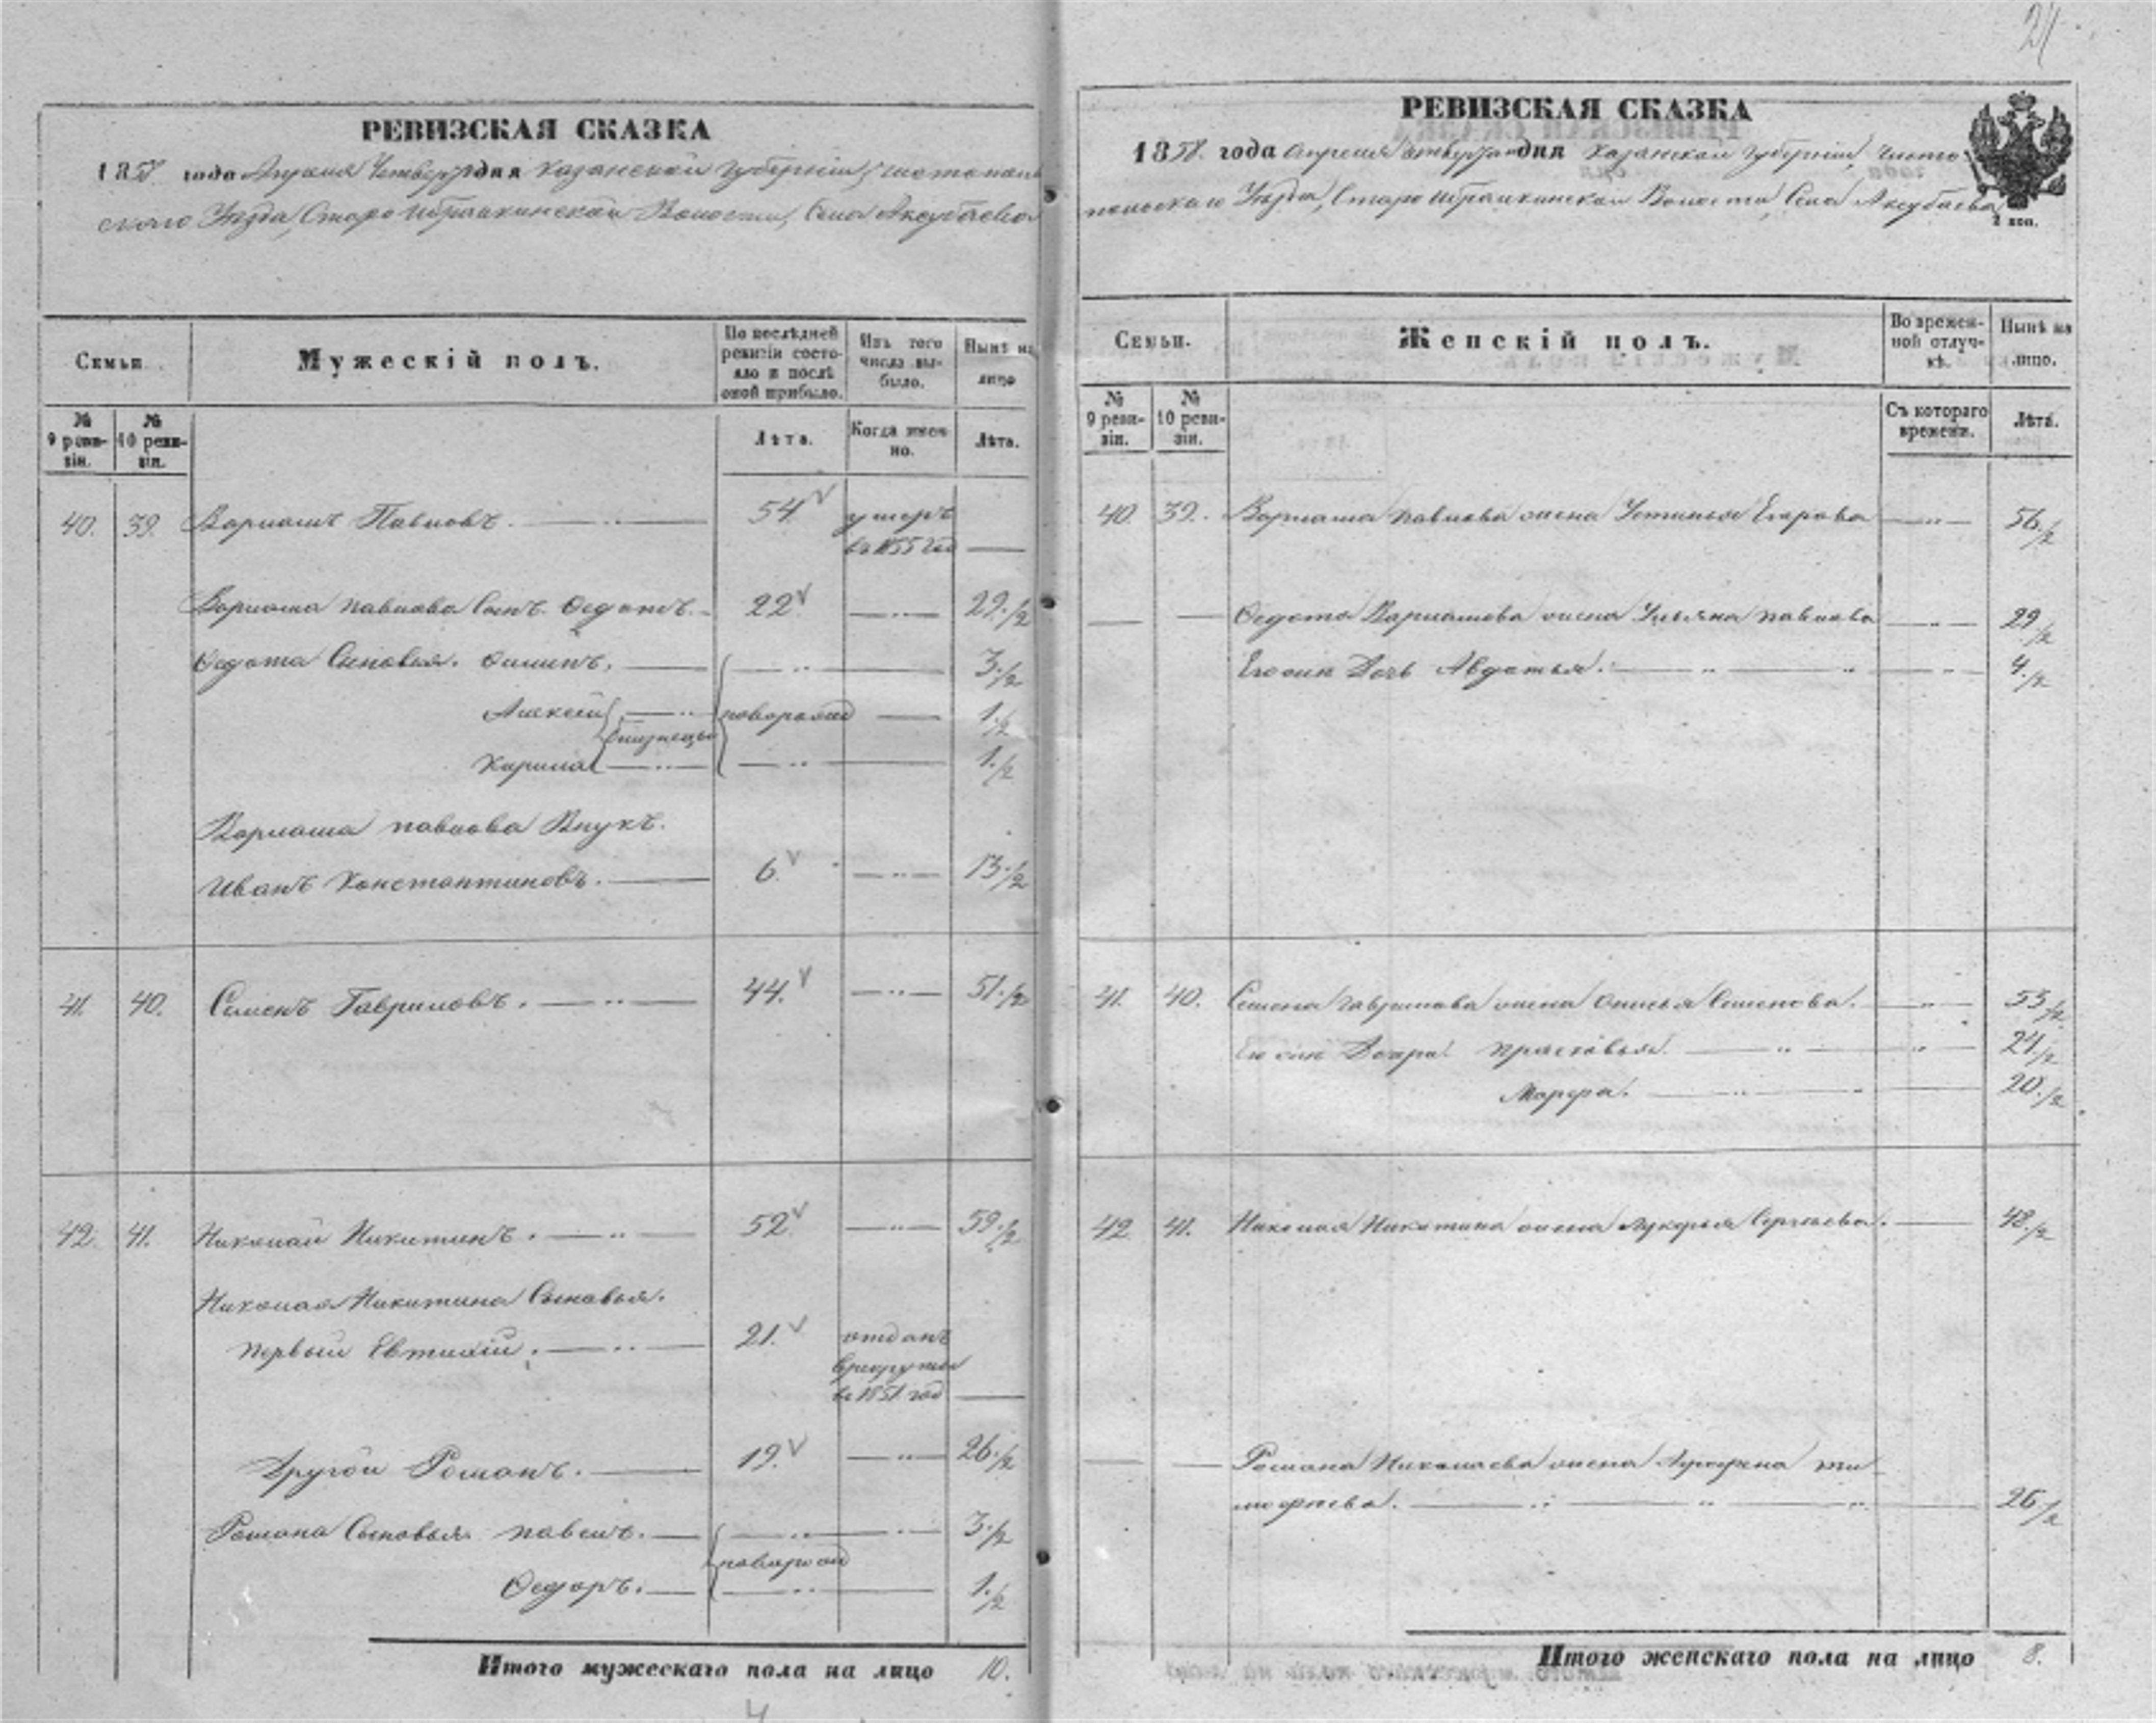 21
РЕВИЗСКАЯ СКАЗКА
1858 года Апреля Четвертого дня Казанской Губерніи, Чистополь
скаго Уѣзда, Старо Ибрайкинской Волости, Села Аксубаева
Семьи.
Мужескій полъ.
По послѣдней ревизіи состояло и послѣ оной прибыло.
Изъ того числа выбыло.
Нынѣ на лицо
№ 9 ревизіи.
№ 10 ревизіи.
Лѣта.
Когда именно.
Лѣта.
40. 39. Варлашъ Павловъ. 54 умеръ
въ 1855 год
Варлама Павлова Сынъ Ѳедотъ. 22 29 1/2
Ѳедота Сыновья. 3 1/2
Алексѣй близнецы новорожд 1 1/2
Кирила 1 1/2
Варлаша Павлова Внукъ.
Иванъ Константиновъ. 6. 13 1/2
41. 40. Семенъ Гавриловъ. 44. 51 1/2
42. 41. Николай Никитинъ. 52 59 1/2
Николая Никитина Сыновья.
первый Евтихій. 21. отданъ
в рекруты
въ 1851 год
другой Романъ. 19. 26 1/2
Романа Сыновья Павелъ. 3 1/2
новорожд
Ѳедоръ. 1 1/2
Итого мужескаго пола на лицо 10.
РЕВИЗСКАЯ СКАЗКА
1858. года Апреля Четвертого дня Казанской Губерніи, Чисто
польскаго Уѣзда, Старо Ибрайкинской Волости, Села Аксубаева
2 коп.
Семьи.
Женскій полъ.
Во временной отлучкѣ.
Нынѣ на лицо.
№ 9 ревизіи.
№ 10 ревизіи.
Съ котораго времени.
Лѣта.
40. 39. Варлаша Павлова жена Устинья Егорова 56 1/2
Ѳедота Варлашова жена Ульяна Павлова 29 1/2
Его жъ Дочь Авдотья. 4 1/2
41. 40. Семена Гаврилова жена Семенова. 53 1/2
Его жъ Дочери Прасковья. 21 1/2
Марфа. 20 1/2
42. 41. Николая Никитина жена Лукерья Сергѣева. 48 1/2
Романа Николаева жена Аграфена Ти
мофѣева. 26 1/2
Итого женскаго пола на лицо 8.